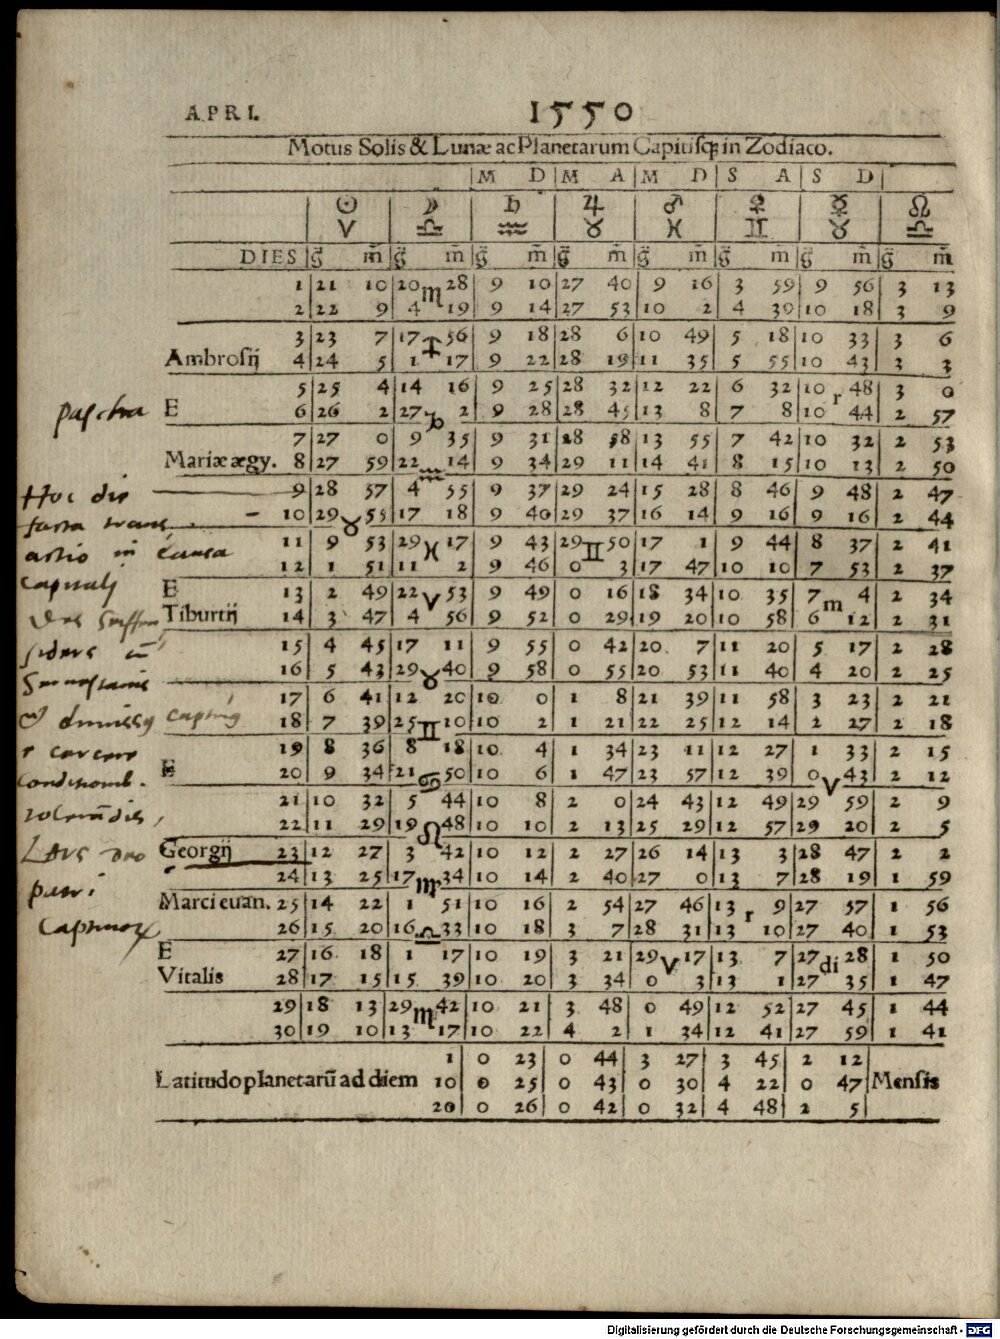 APRI. 1550
Motus Solis & Lunæ ac Planetarum Capitisq; in Zodiaco.
M D M A M D S A S D
☉ ☽ ♄ ♃ ♂ ♀ ☿ ☊
♈ ♎ ♒ ♉ ♓ ♊ ♉ ♎
DIES g̃ m̃ g̃ m̃ g̃ m̃ g̃ m̃ g̃ m̃ g̃ m̃ g̃ m̃ g̃ m̃
1 21 10 20 ♏ 28 9 10 27 40 9 16 3 59 9 56 3 13
2 22 9 4 19 9 14 27 53 10 2 4 39 10 18 3 9
3 23 7 17 ♐ 56 9 18 28 6 10 49 5 18 10 33 3 6
Ambrosij 4 24 5 1 17 9 22 28 19 11 35 5 55 10 43 3 3
5 25 4 14 16 9 25 28 32 12 22 6 32 10 r 48 3 0
pascha E 6 26 2 27 ♑ 2 9 28 28 45 13 8 7 8 10 44 2 57
7 27 0 9 35 9 31 28 58 13 55 7 42 10 32 2 53
Mariæ ægy. 8 27 59 22 ♒ 14 9 34 29 11 14 41 8 15 10 13 2 50
Hoc die 9 28 57 4 55 9 37 29 24 15 28 8 46 9 48 2 47
10 29 ♉ 55 17 18 9 40 29 37 16 14 9 16 9 16 2 44
in causa 11 0 53 29 ♓ 17 9 43 29 ♊ 50 17 1 9 44 8 37 2 41
capitali 12 1 51 11 2 9 46 0 3 17 47 10 10 7 53 2 37
E 13 2 49 22 ♈ 53 9 49 0 16 18 34 10 35 7 m 4 2 34
Tiburtij 14 3 47 4 56 9 52 0 29 19 20 10 58 6 12 2 31
15 4 45 17 11 9 55 0 42 20 7 11 20 5 17 2 28
16 5 43 29 ♉ 40 9 58 0 55 20 53 11 40 4 20 2 25
17 6 41 12 20 10 0 1 8 21 39 11 58 3 23 2 21
18 7 39 25 ♊ 10 10 2 1 21 22 25 12 14 2 27 2 18
19 8 36 8 18 10 4 1 34 23 11 12 27 1 33 2 15
E 20 9 34 21 ♋ 50 10 6 1 47 23 57 12 39 0 ♈ 43 2 12
21 10 32 5 44 10 8 2 0 24 43 12 49 29 59 2 9
22 11 29 19 ♌ 48 10 10 2 13 25 29 12 57 29 20 2 5
Georgij 23 12 27 3 42 10 12 2 27 26 14 13 3 28 47 2 2
24 13 25 17 ♍ 34 10 14 2 40 27 0 13 7 28 19 1 59
Marci euan. 25 14 22 1 51 10 16 2 54 27 46 13 r 9 27 57 1 56
26 15 20 16 ♎ 33 10 18 3 7 28 31 13 10 27 40 1 53
E 27 16 18 1 17 10 19 3 21 29 ♈ 17 13 7 27 di 28 1 50
Vitalis 28 17 15 15 39 10 20 3 34 0 3 13 1 27 35 1 47
29 18 13 29 ♏ 42 10 21 3 48 0 49 12 52 27 45 1 44
30 19 10 13 17 10 22 4 2 1 34 12 41 27 59 1 41
1 0 23 0 44 3 27 3 45 2 12
Latitudo planetarū ad diem 10 0 25 0 43 0 30 4 22 0 47 Mensis
20 0 26 0 42 0 32 4 48 2 5
Digitalisierung gefördert durch die Deutsche Forschungsgemeinschaft - DFG